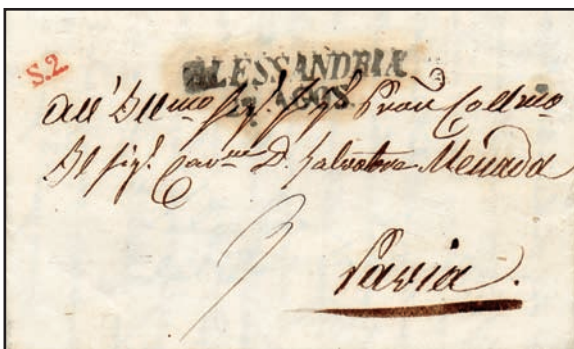 S.2.
ALESSANDRIA
27. AGOS.
All' Ill.mo Sig.r Sig.r Pron Col.mo
Il Sig.r Cav.re D. Salvatore Menada
Pavia.